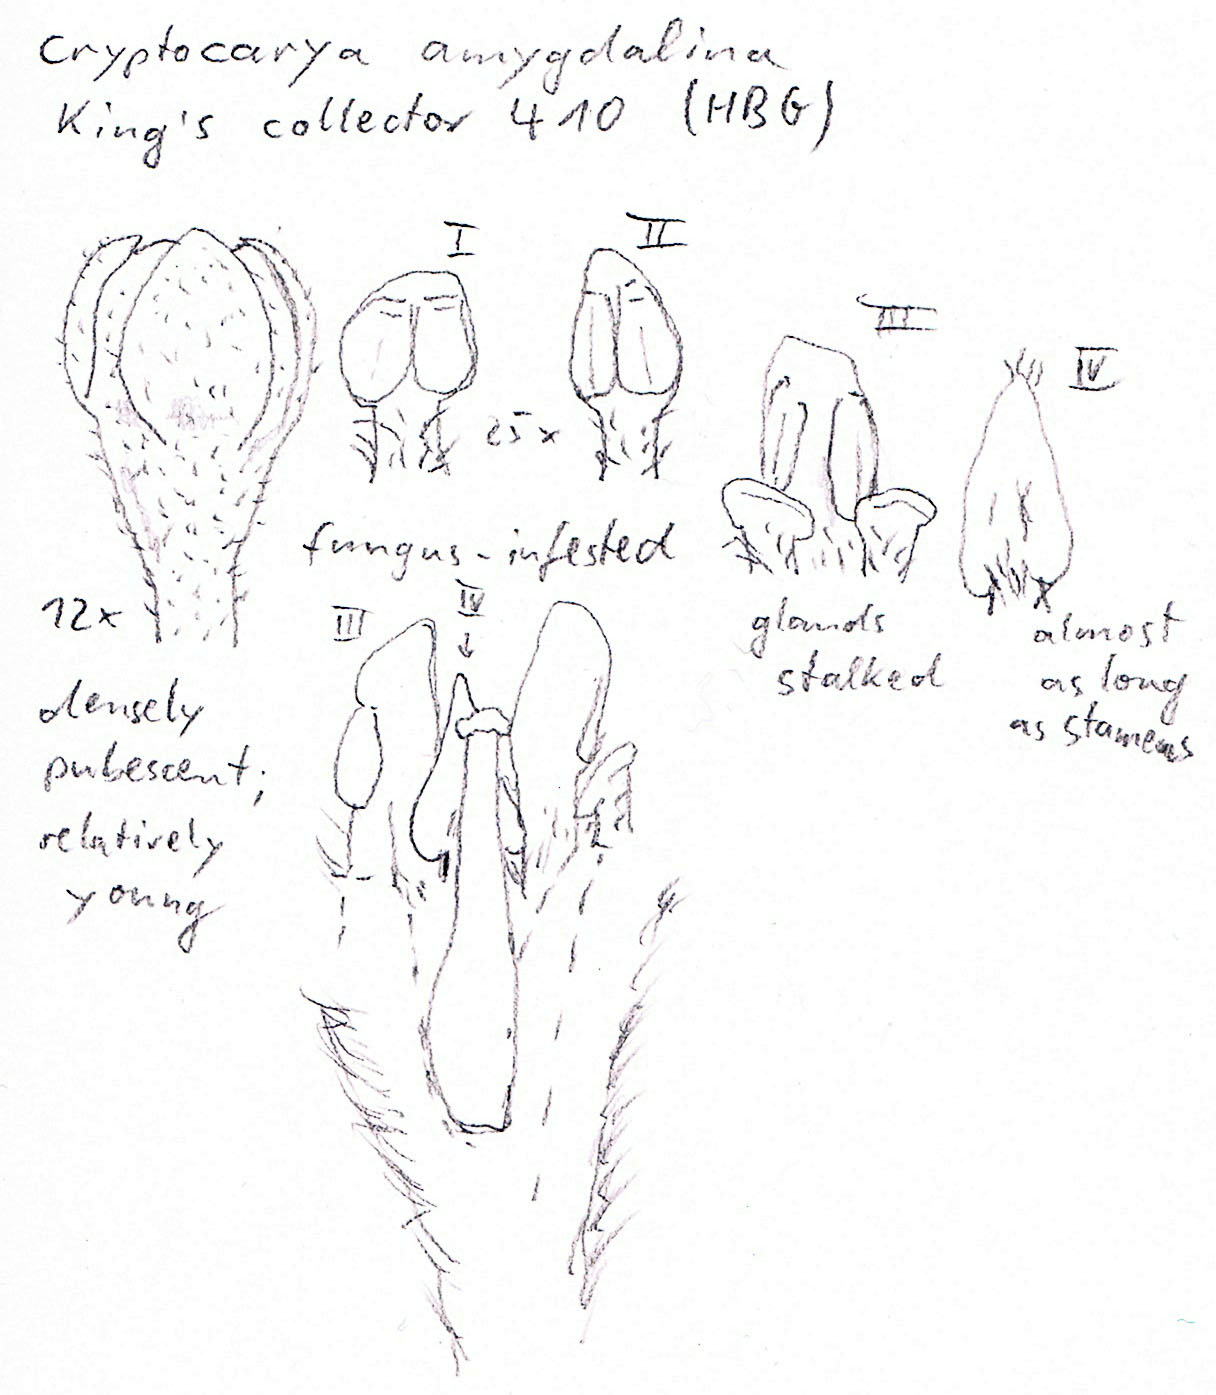 Cryptocarya amygdalina
King's collector 410 (HBG)
I
II
III
IV
25x
fungus-infested
12x
densely
pubescent;
relatively
young
III
IV
glands
stalked
almost
as long
as stamens